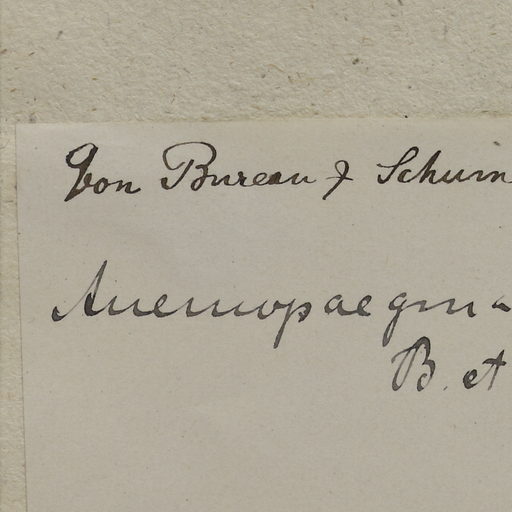 Von Bureau & Schum
Anemopaegma
B. et